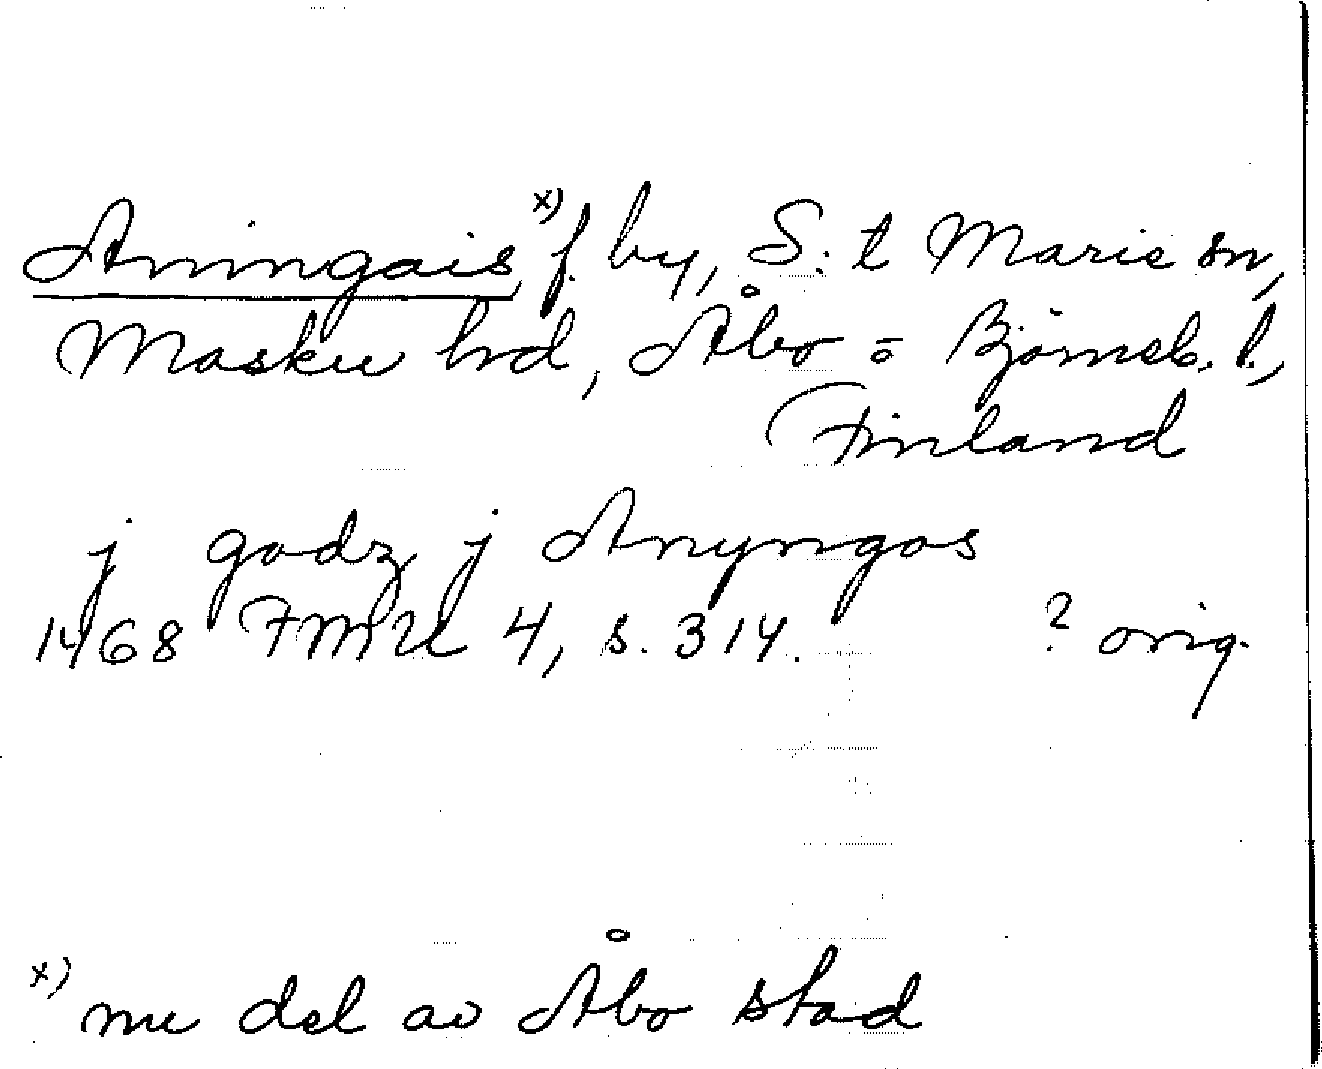 Aningais x) f. by, S:t Marie sn,
Masku hd, Åbo o Björneb. l.,
Finland
j godz j Anyngos
1468 FMU 4, s. 314. ? orig.
x) nu del av Åbo stad